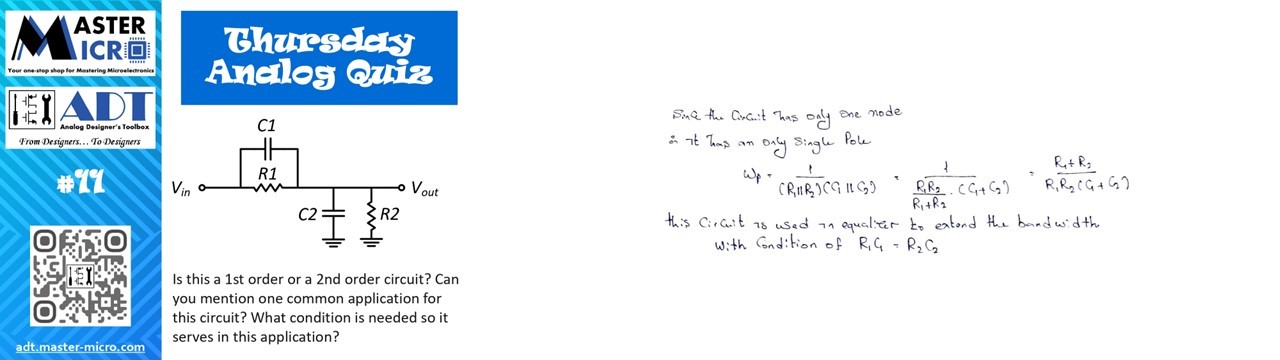 MASTER
MICRO
Your one-stop shop for Mastering Microelectronics
ADT
Analog Designer's Toolbox
From Designers... To Designers
#11
adt.master-micro.com
Thursday
Analog Quiz
C1
R1
Vin
Vout
C2
R2
Is this a 1st order or a 2nd order circuit? Can
you mention one common application for
this circuit? What condition is needed so it
serves in this application?
Since the Circuit has only one node
∴ it has an only Single Pole
ωp = 1 / (R1||R2)(C1||C2) = 1 / (R1R2/(R1+R2) . (C1+C2)) = (R1+R2) / (R1R2(C1+C2))
this Circuit is used in equalizer to extend the bandwidth
with Condition of R1C1 = R2C2